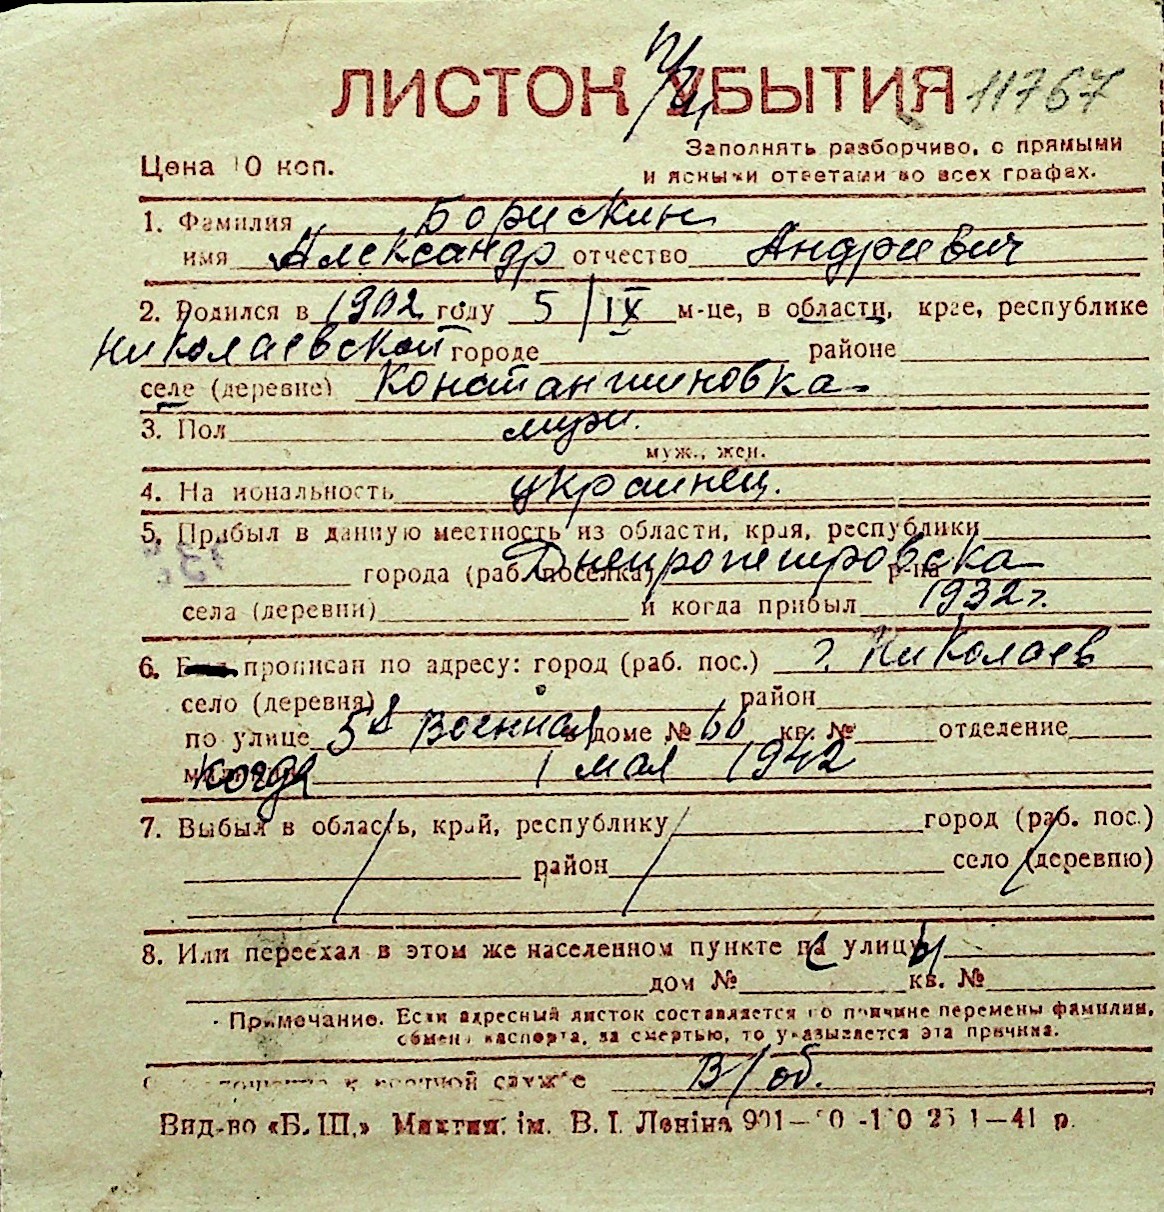 ЛИСТОК УБЫТИЯ 11767
Заполнять разборчиво, с прямыми
Цена 10 коп.
и ясными ответами во всех графах.
1. Фамилия Борискин
имя Александр отчество Андреевич
2. Родился в 1902 году 5/IX м-це, в области, крае, республике
Николаевской городе районе
селе (деревне) Константиновка
3. Пол муж.
муж., жен.
4. Национальность украинец.
5. Прибыл в данную местность из области, края, республики
Днепропетровска
города (раб. поселка) р-на
села (деревни) и когда прибыл 1932 г.
6. прописан по адресу: город (раб. пос.) г. Николаев
село (деревня) район
по улице 5я Военная в доме № 60 кв. № отделение
когда 1 мая 1942
7. Выбыл в область, край, республику город (раб. пос.)
район село (деревню)
8. Или переехал в этом же населенном пункте на улицу
дом № кв. №
Примечание. Если адресный листок составляется по причине перемены фамилии,
обмена паспорта, за смертью, то указывается эта причина.
к военной службе В/об.
Вид-во «Б. III.» ім. В. І. Леніна